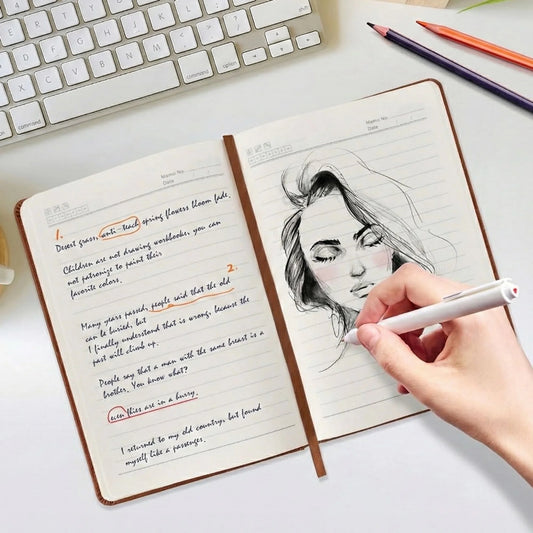 command
option
command
Memo No.
Date
Memo No.
Date
1.
Desert grass, anti-teach spring flowers bloom fade.
Children are not drawing workbooks, you can
not patronize to paint their
favorite colors.
2.
Many years passed, people said that the old
can be buried, but
I finally understand that is wrong, because the
past will climb up.
People say that a man with the same breast is a
brother. You know what?
even flies are in a hurry.
I returned to my old country, but found
myself like a passenger.